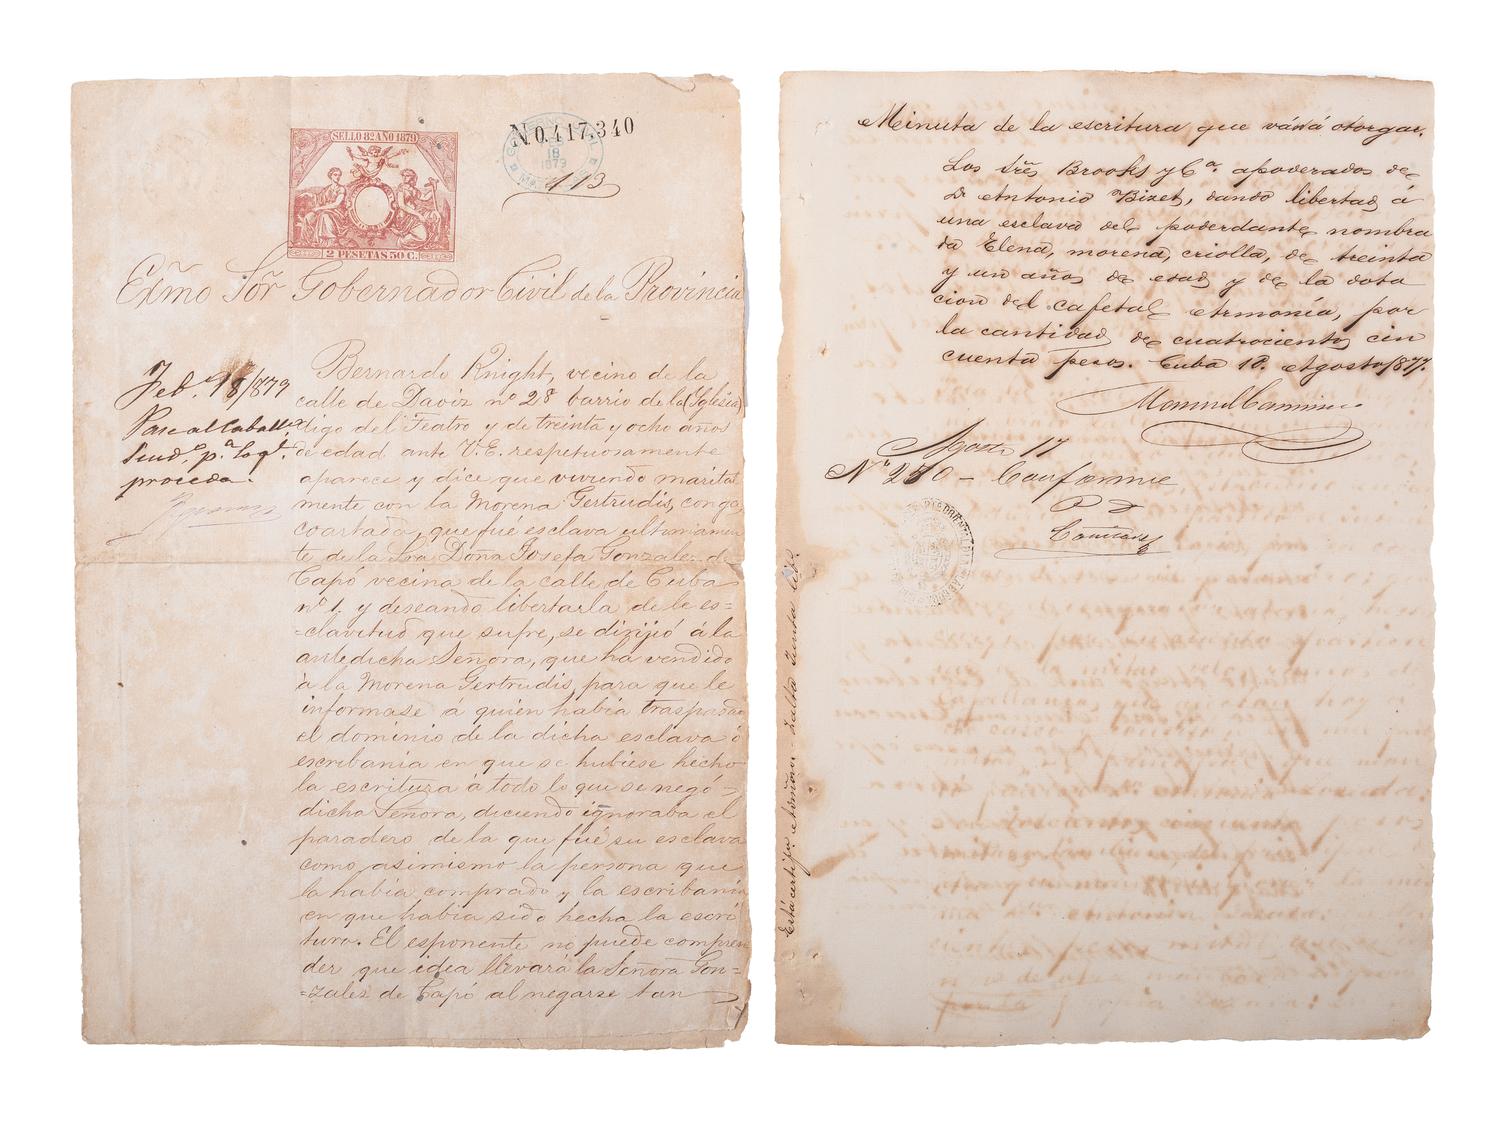 SELLO 8º AÑO 1879
2 PESETAS 50 C.
N0.417,340
18
1879
113
Exmo Sor Gobernador Civil de la Provincia
Feb.º 18/879
Pascual Caball
Sind.º p.ª lo q.e
proceda.
Bernardo Knight, vecino de la
calle de Daoiz nº 28 barrio de la (Iglesia)
digo del Teatro y de treinta y ocho años
de edad ante V.E. respetuosamente
aparece y dice que viviendo marital
mente con la Morena Gertrudis, conga,
coartada, que fué esclava ultimamen
te de la Sra Doña Josefa Gonzalez de
Capó vecina de la calle de Cuba
nº 1. y deseando libertarla de le es=
=clavitud que sufre, se dirijió á la
antedicha Señora, que ha vendido
á la Morena Gertrudis, para que le
informase á quién había traspasado
el dominio de la dicha esclava ó
escribanía en que se hubiese hecho
la escritura á todo lo que se negó
dicha Señora, diciendo ignoraba el
paradero de la que fué su esclava
como asimismo la persona que
la había comprado y la escribanía
en que había sido hecha la escri
tura. El esponente no puede compren
der que idea llevará la Señora Gon=
=zales de Capó al negarse tan
Minuta de la escritura que vá á otorgar.
Los Sres Brooks y Cª apoderados de
D Antonio Bizet, dando libertad á
una esclava del poderdante nombra
da Elena, morena, criolla, de treinta
y un años de edad y de la dota
cion del cafetal Armonía, por
la cantidad de cuatrocientos cin
cuenta pesos. Cuba 10. Agosto/877.
Agosto 17
Nº 270 - Conforme
Está certifi